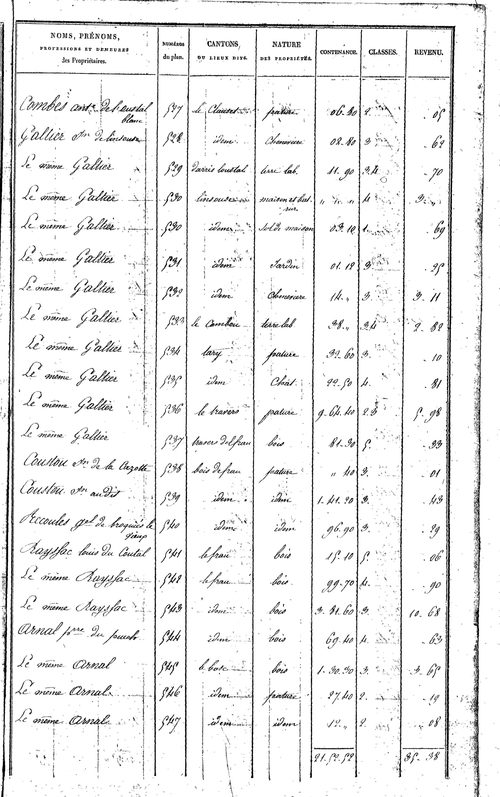 NOMS, PRÉNOMS, PROFESSIONS ET DEMEURES des Propriétaires. NUMÉROS du plan. CANTONS, OU LIEUX DITS. NATURE DES PROPRIÉTÉS. CONTENANCE. CLASSES. REVENU.
Combes ant.e de l'oustal blanc 527 le Clauset pature 06.30 2 05
Galtier 528 idem Cheneviere 08.80 3 62
Le même Galtier 529 terre lab. 11.90 3.4 70
Le même Galtier 530 maison et 4 3.
Le même Galtier 530 idem sol de maison 03.10 1. 69
Le même Galtier 531 idem Jardin 01.12 3 25
Le même Galtier 532 idem Cheneviere 14. 3 3.11
Le même Galtier 533 le terre lab 38. 3.4 2.82
Le même Galtier 534 tary pature 32.60 3. 10
Le même Galtier 535 idem Chat. 22.50 4. 81
Le même Galtier 536 le travers pature 9.64.40 2.3 5.98
Le même Galtier 537 travers del frau bois 81.30 5. 33
Coustou de la 538 bois de frau pature 40 3. 01
Coustou au dit 539 idem idem 1.41.30 3. 43
Reccoules de broquiés le vieux 540 idem idem 96.90 3 29
Rayssac louis du Coutal 541 le frau bois 15.10 5 06
Le même Rayssac 542 le frau bois 99.70 4. 90
Le même Rayssac 543 idem bois 3.81.60 3. 10.68
Arnal du 544 idem bois 69.40 4. 63
Le même Arnal 545 le bosc bois 1.30.30 3. 3.65
Le même Arnal 546 idem pature 27.40 2. 19
Le même Arnal 547 idem idem 12. 2. 08
21.52.52 35.38